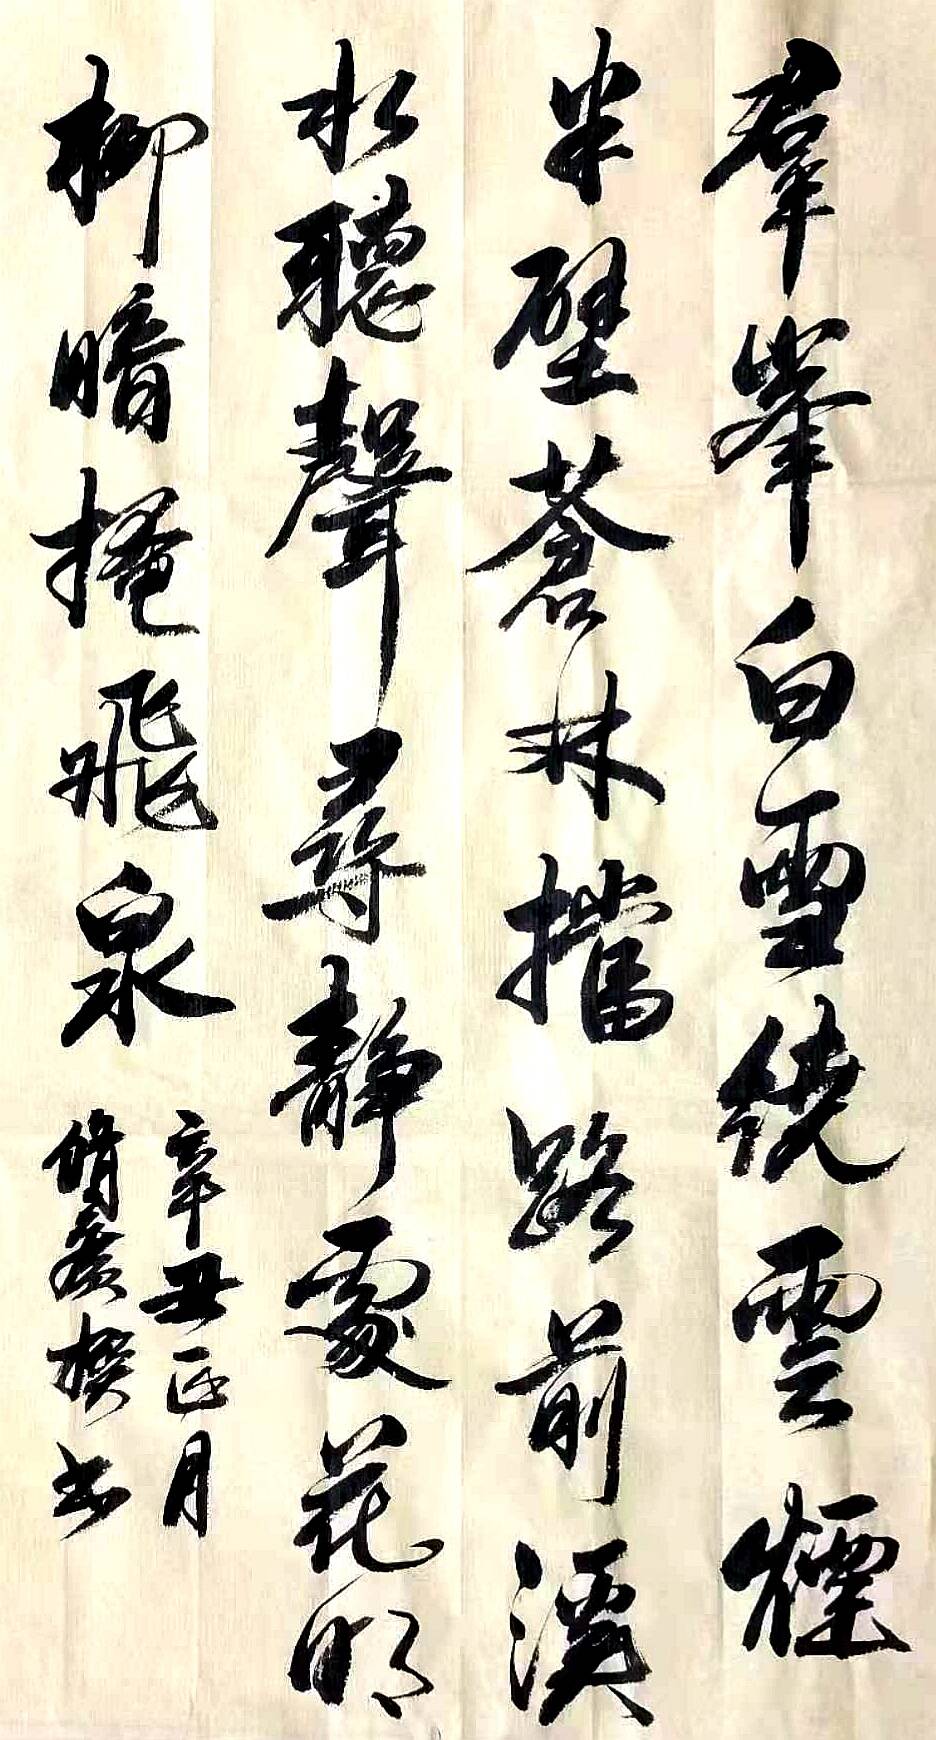 羣峯白雪繞雲煙
半壁蒼林擋路前溪
水聽聲尋靜處花明
柳暗掩飛泉
辛丑正月
撰书